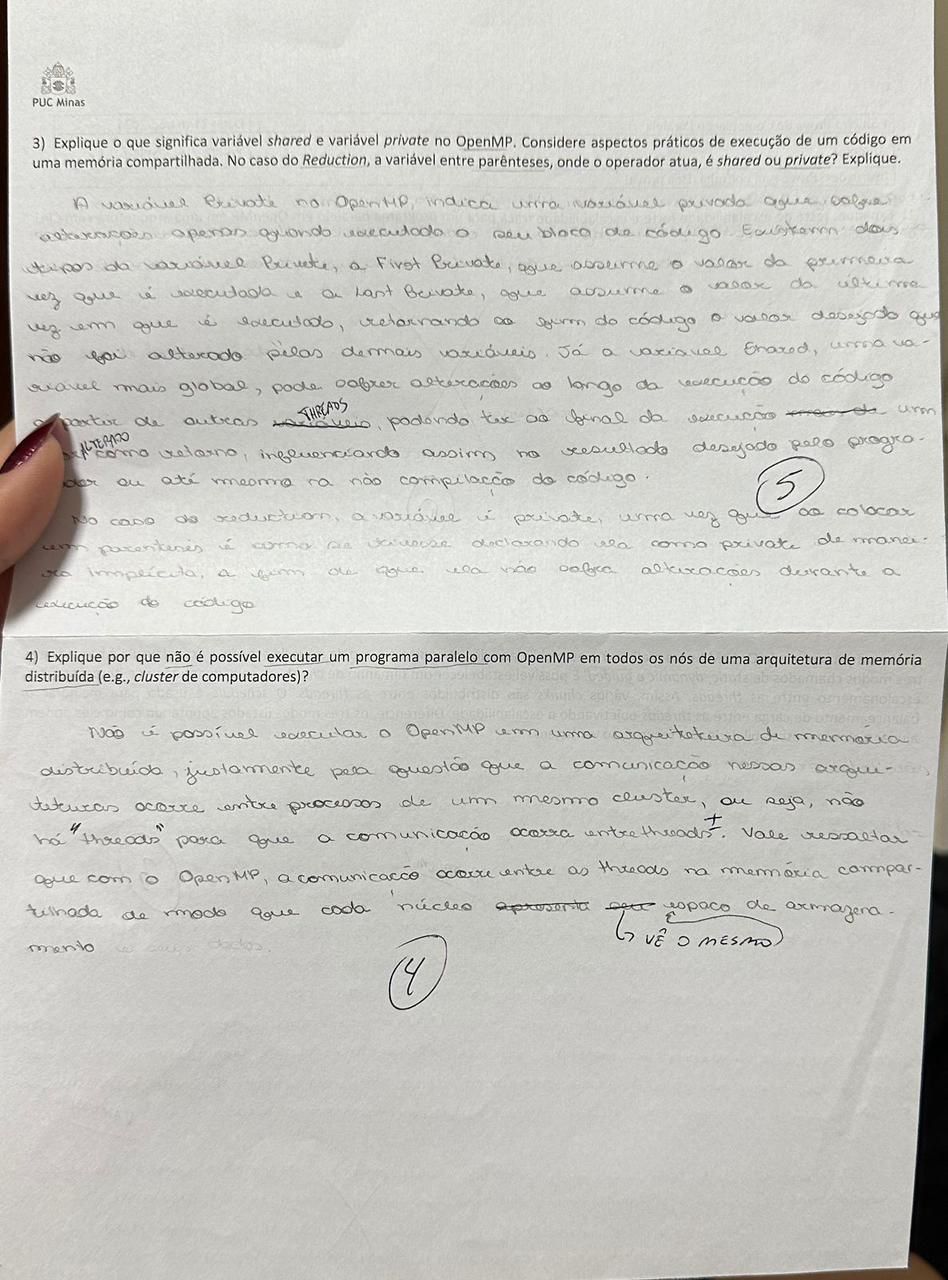 PUC Minas
3) Explique o que significa variável shared e variável private no OpenMP. Considere aspectos práticos de execução de um código em
uma memória compartilhada. No caso do Reduction, a variável entre parênteses, onde o operador atua, é shared ou private? Explique.
A variável Private no OpenMP, indica uma variável privada que sofre
alterações apenas quando executado o seu bloco de código. Existem dois
tipos da variável Private, a First Private, que assume o valor da primeira
vez que é executada e a Last Private, que assume o valor da última
vez em que é executado, retornando ao fim do código o valor desejado que
não foi alterado pelas demais variáveis. Já a variável Shared, uma va-
riável mais global, pode sofrer alterações ao longo da execução do código
THREADS
a partir de outras variáveis, podendo ter ao final da execução um
ALTERADO
como retorno, influenciando assim no resultado desejado pelo progra-
ou até mesmo na não compilação do código.
5
No caso do reduction, a variável é private, uma vez que ao colocar
em parenteses é como se tivesse declarando ela como private de manei-
ra implícita, a fim de que ela não sofra alterações durante a
execução do código
4) Explique por que não é possível executar um programa paralelo com OpenMP em todos os nós de uma arquitetura de memória
distribuída (e.g., cluster de computadores)?
Não é possível executar o OpenMP em uma arquitetura de memória
distribuída, justamente pela questão que a comunicação nessas arqui-
teturas ocorre entre processos de um mesmo cluster, ou seja, não
há "threads" para que a comunicação ocorra entre threads. Vale ressaltar
que com o OpenMP, a comunicação ocorre entre as threads na memória compar-
tilhada de modo que cada núcleo apresenta seu espaço de armazena-
VÊ O MESMO
mento e seus dados.
4